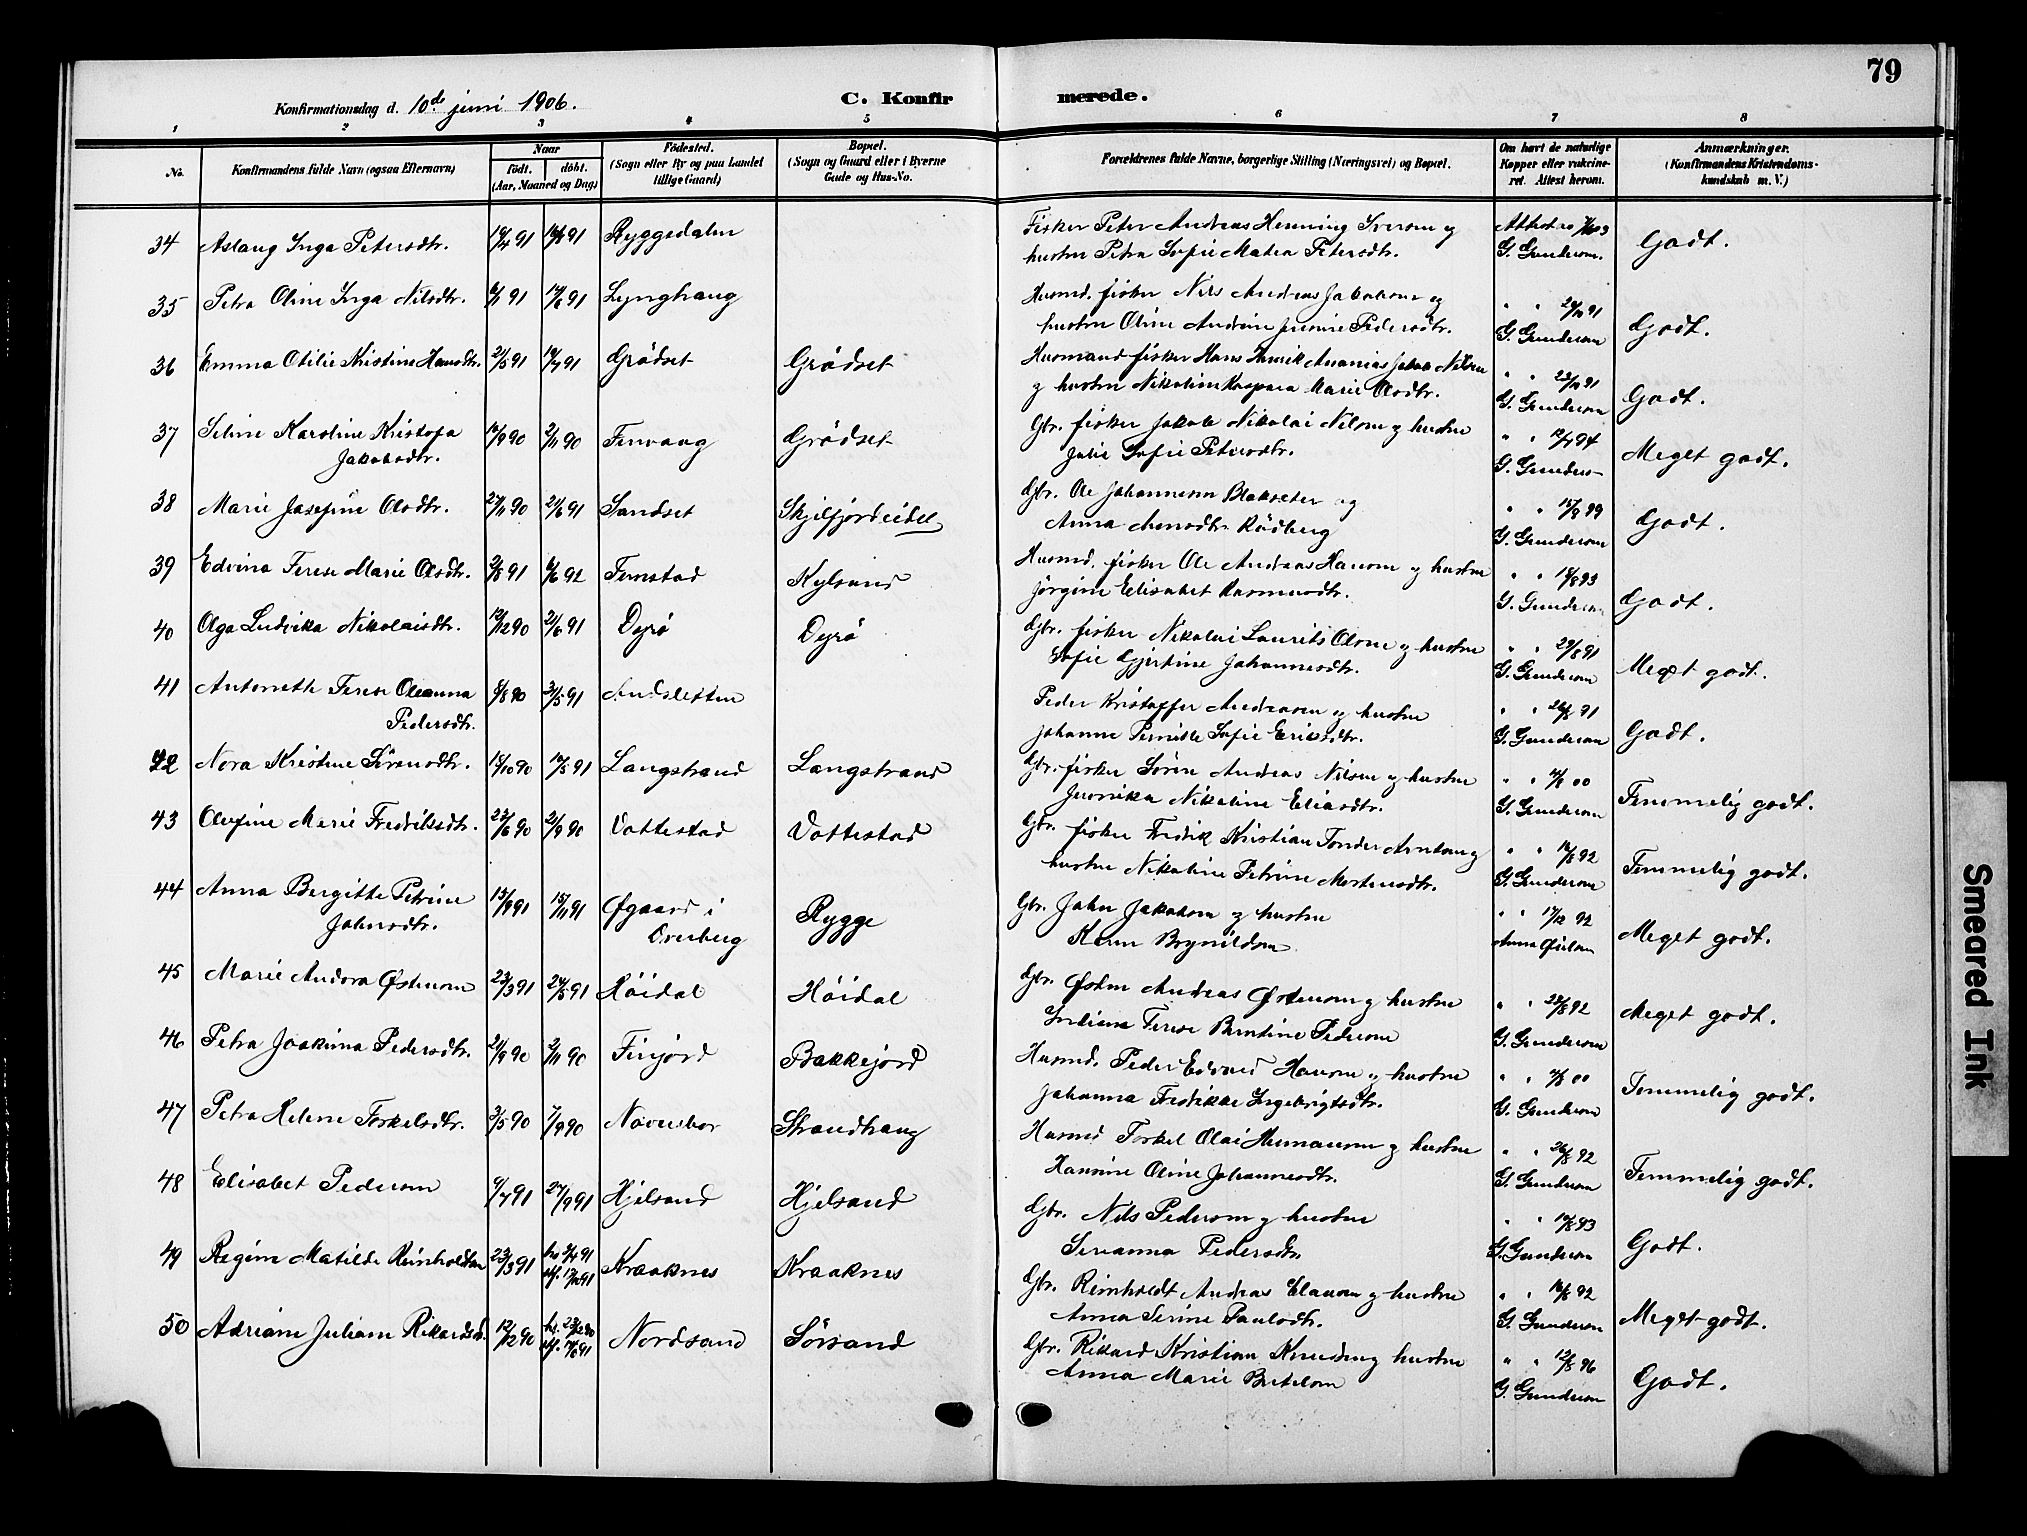 79
Konfirmationsdag d. 10de juni 1906. C. Konfir merede.
1 2 3 4 5 6 7 8
No. Konfirmandens fulde Navn (ogsaa Efternavn) Naar født. døbt. (Aar, Maaned og Dag) Fødested. (Sogn eller By og paa Landet tillige Gaard) Bopæl. (Sogn og Gaard eller i Byerne Gade og Hus-No. Forældrenes fulde Navne, borgerlige Stilling (Næringsvei) og Bopæl. Om havt de naturlige Kopper eller vaccineret. Attest herom. Anmærkninger. (Konfirmandens Kristendomskundskab m. V.)
34 Aslaug Inga Petersdtr. Ryggedalen Fisker Peter Andreas Henning Iversen og
hustru Petra Sofie Matea Petersdtr. G. Gundersen. Godt.
35 Petra Oline Inga Nilsdtr. Lynghaug Husmd. fisker Nils Andreas Jakobsen og
hustru Oline Andrine Jensine Pedersdtr. G. Gundersen Godt.
36 Emma Otilie Kristine Hansdtr. 21/5 91 Grødset Grødset Husmand fisker Hans Henrik Ananias Jakob Nilsen
og hustru Nikoline Kaspara Marie Olsdtr. G. Gundersen Godt.
37 Seline Karoline Kristofa
Jakobsdtr. 2/11 90 Finvaag Grødset Gbr. fisker Jakob Nikolai Nilsen og hustru
Julie Sofie Petersdtr. G. Gunders- Meget godt.
38 Marie Josefine Olsdtr. 27/11 90 21/6 91 Sandset Skjelfjordeidet Gbr. Ole Johannesen Blokseter og
Anna Arnsdtr. Rødberg 15/8 99 G. Gundersen Godt.
39 Edvina Terese Marie Olsdtr. 3/8 91 6/6 92 Finstad Kylsand Husmd. fisker Ole Andreas Hansen og hustru
Jørgine Elisabet Rasmusdtr. 18/8 93 G. Gundersen Godt.
40 Olga Ludvika Nikolaisdtr. 12/12 90 21/6 91 Dyrø Dyrø Gbr. fisker Nikolai Laurits Olsen og hustru
Sofie Gjertine Johannesdtr. 29/8 91 G. Gundersen Meget godt.
41 Antonette Terese Oleanna
Pedersdtr. 8/8 90 31/5 91 Peder Kristoffer Andreasen og hustru
Johanne Pernille Sofie Eriksdtr. 26/8 91 G. Gundersen Godt.
42 Nora Kristine Sørensdtr. 15/10 90 Langstrand Langstrand Gbr. fisker Søren Andreas Nilsen og hustru
Jeronika Nikoline Eliasdtr. G. Gundersen Temmelig godt.
43 Olufine Marie Fredriksdtr. 22/6 90 21/9 90 Vottestad Vottestad Gbr. fisker Fredrik Kristian Tonder Arntsen og
hustru Nikoline Petrine Mortensdtr. G. Gundersen Temmelig godt.
44 Anna Bergitte Petrine
Johnsdtr. 15/11 91 Øgaard i
Overberg Rygge Gbr. John Jakobsen og hustru
Karen Brynildsen 17/12 92 Meget godt.
45 Marie Andora Østensen 23/3 91 24/5 91 Høidal Høidal Gbr. Østen Andreas Østensen og hustru
Juliana Terese Berntine Pedersen G. Gundersen Meget godt.
46 Petra Joakima Pedersdtr. 21/9 90 2/11 90 Finjord Bakkejord Husmd. Peder Edvard Hansen og hustru
Johanna Fredrikke Ingebrigtsdtr. G. Gundersen Temmelig godt.
47 Petra Helene Torkelsdtr. 3/5 90 7/9 90 Strandhaug Husmd Torkel Olai Hermansen og hustru
Hansine Oline Johannesdtr. 26/8 92 G. Gundersen Temmelig godt.
48 Elisabet Pedersen 27/9 91 Hjelsand Hjelsand Gbr. Nils Pedersen og hustru
Serianna Pedersdtr. G. Gundersen Godt.
49 Regine Matilde Reinholdtsen 23/3 91 Kraaknes Kraaknes Gbr. Reinholdt Andreas Clausen og hustru
Anna Serine Paulsdtr. G. Gundersen Meget godt.
50 Adriane Juliane Rikardsdt. 12/12 90 Nordsand Sørsand Gbr. Rikard Kristian Knudsen og hustru
Anna Marie Bertelsen G. Gundersen Godt.
Smeared Ink